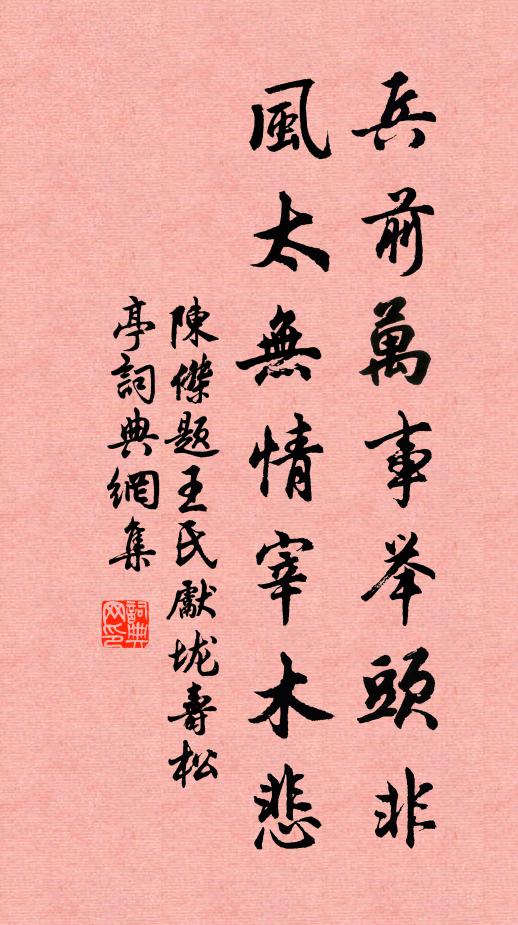 兵前萬事举頭非
風太無情宰木悲
陳傑題王氏獻垅壽松
亭詞典網集
詞典网印